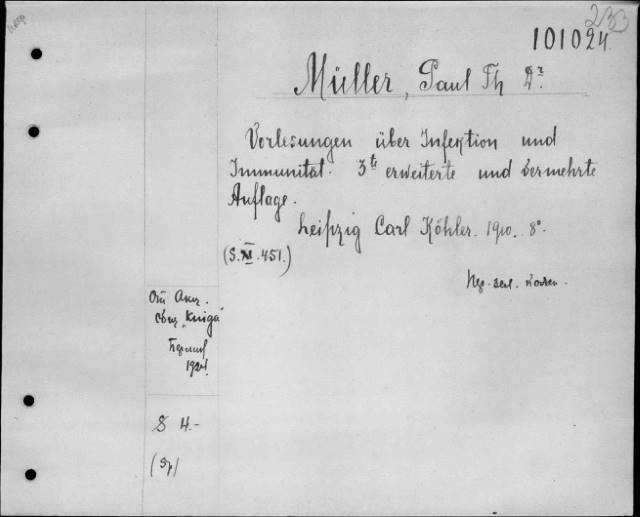 233
101024
Müller, Paul Th Dr.
Vorlesungen über Infektion und
Immunität. 3te erweiterte und vermehrte
Auflage.
Leipzig Carl Köhler. 1910. 8°.
(S. XI. 451.)
"Kniga"
1924
8 4.-